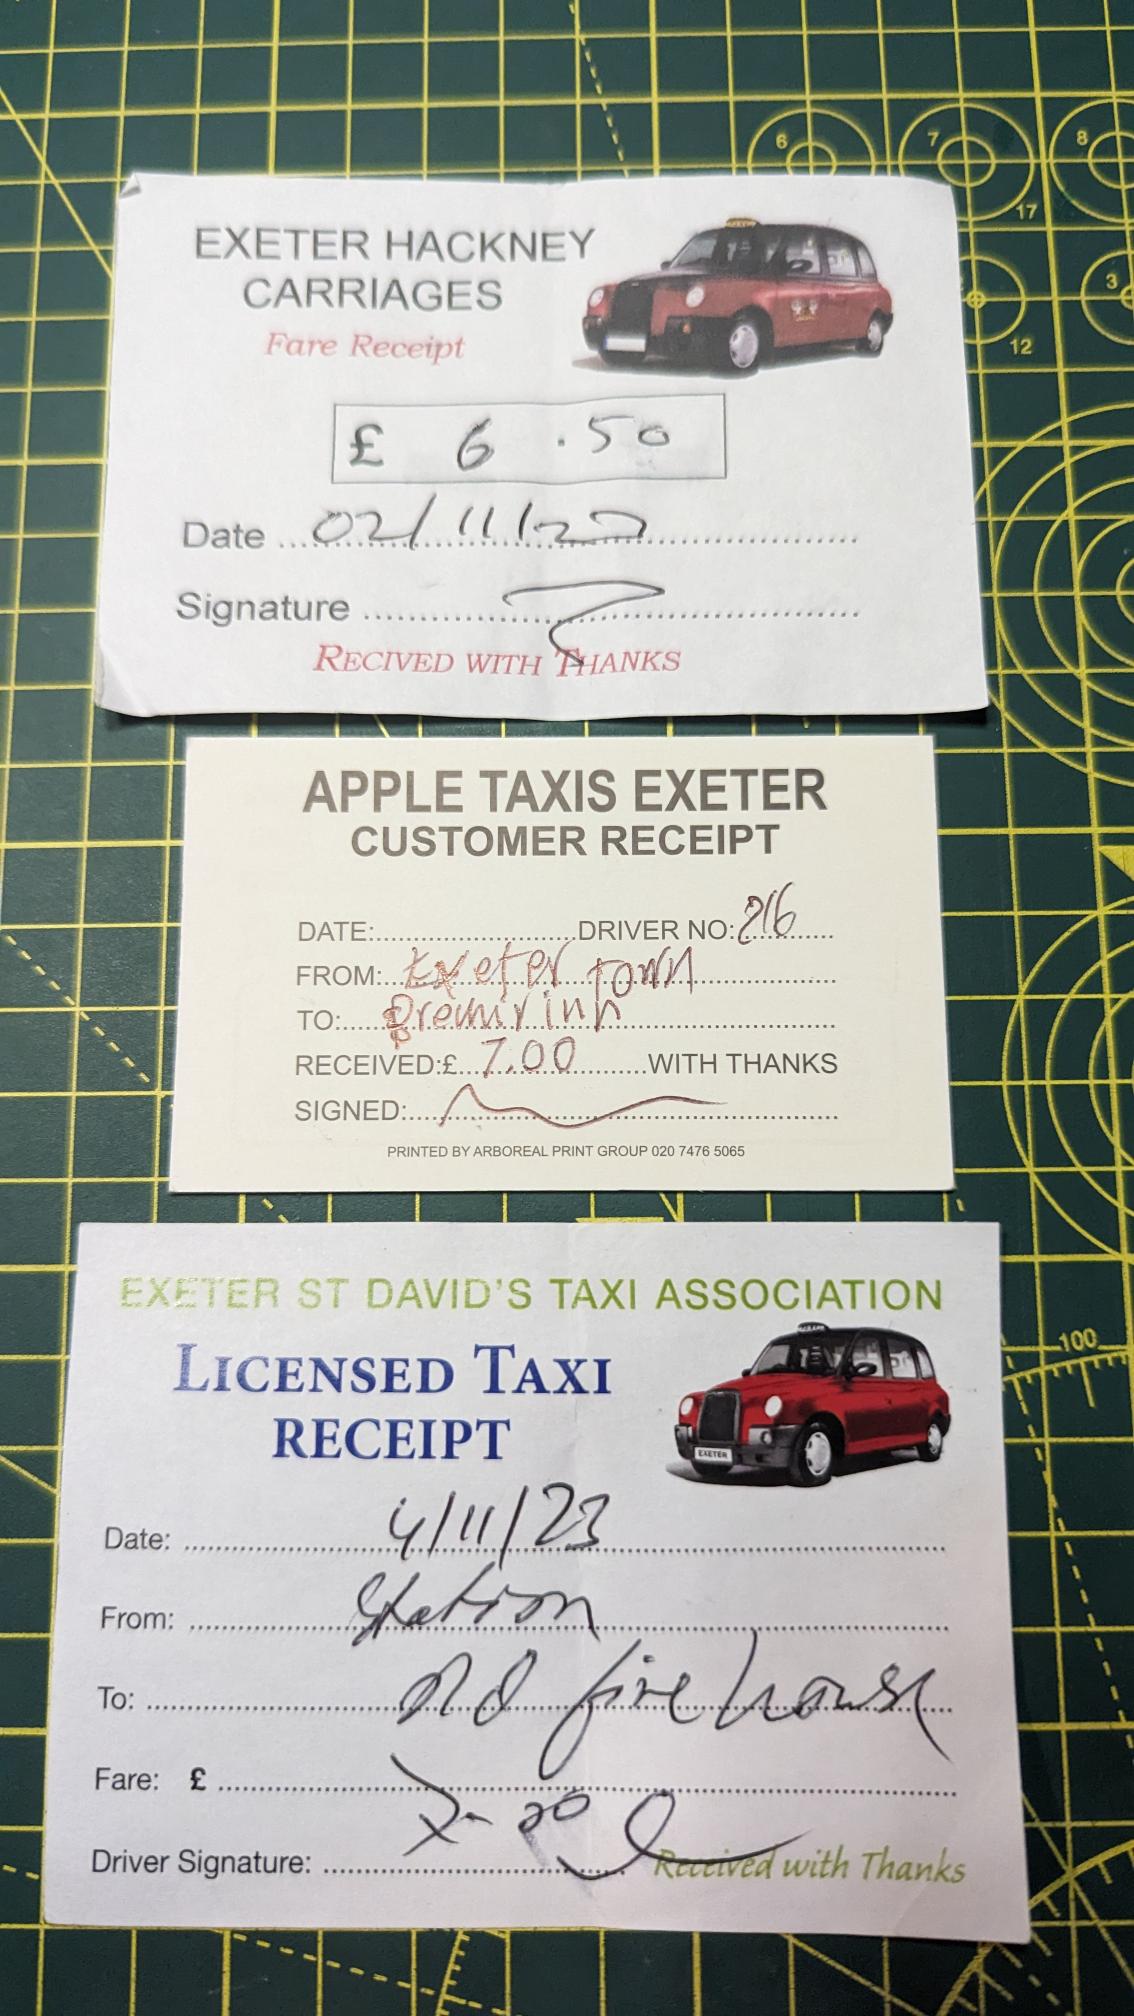 6
7
8
17
3
12
EXETER HACKNEY
CARRIAGES
Fare Receipt
£ 6 .50
Date 02/11/22
Signature
RECIVED WITH THANKS
APPLE TAXIS EXETER
CUSTOMER RECEIPT
DATE: DRIVER NO: 216
FROM: Exeter town
TO: premir inn
RECEIVED:£ 7.00 WITH THANKS
SIGNED:
PRINTED BY ARBOREAL PRINT GROUP 020 7476 5065
100
EXETER ST DAVID'S TAXI ASSOCIATION
LICENSED TAXI
RECEIPT
EXETER
Date: 4/11/23
From: Station
To: Old fire house
Fare: £ 7-20
Driver Signature: Received with Thanks